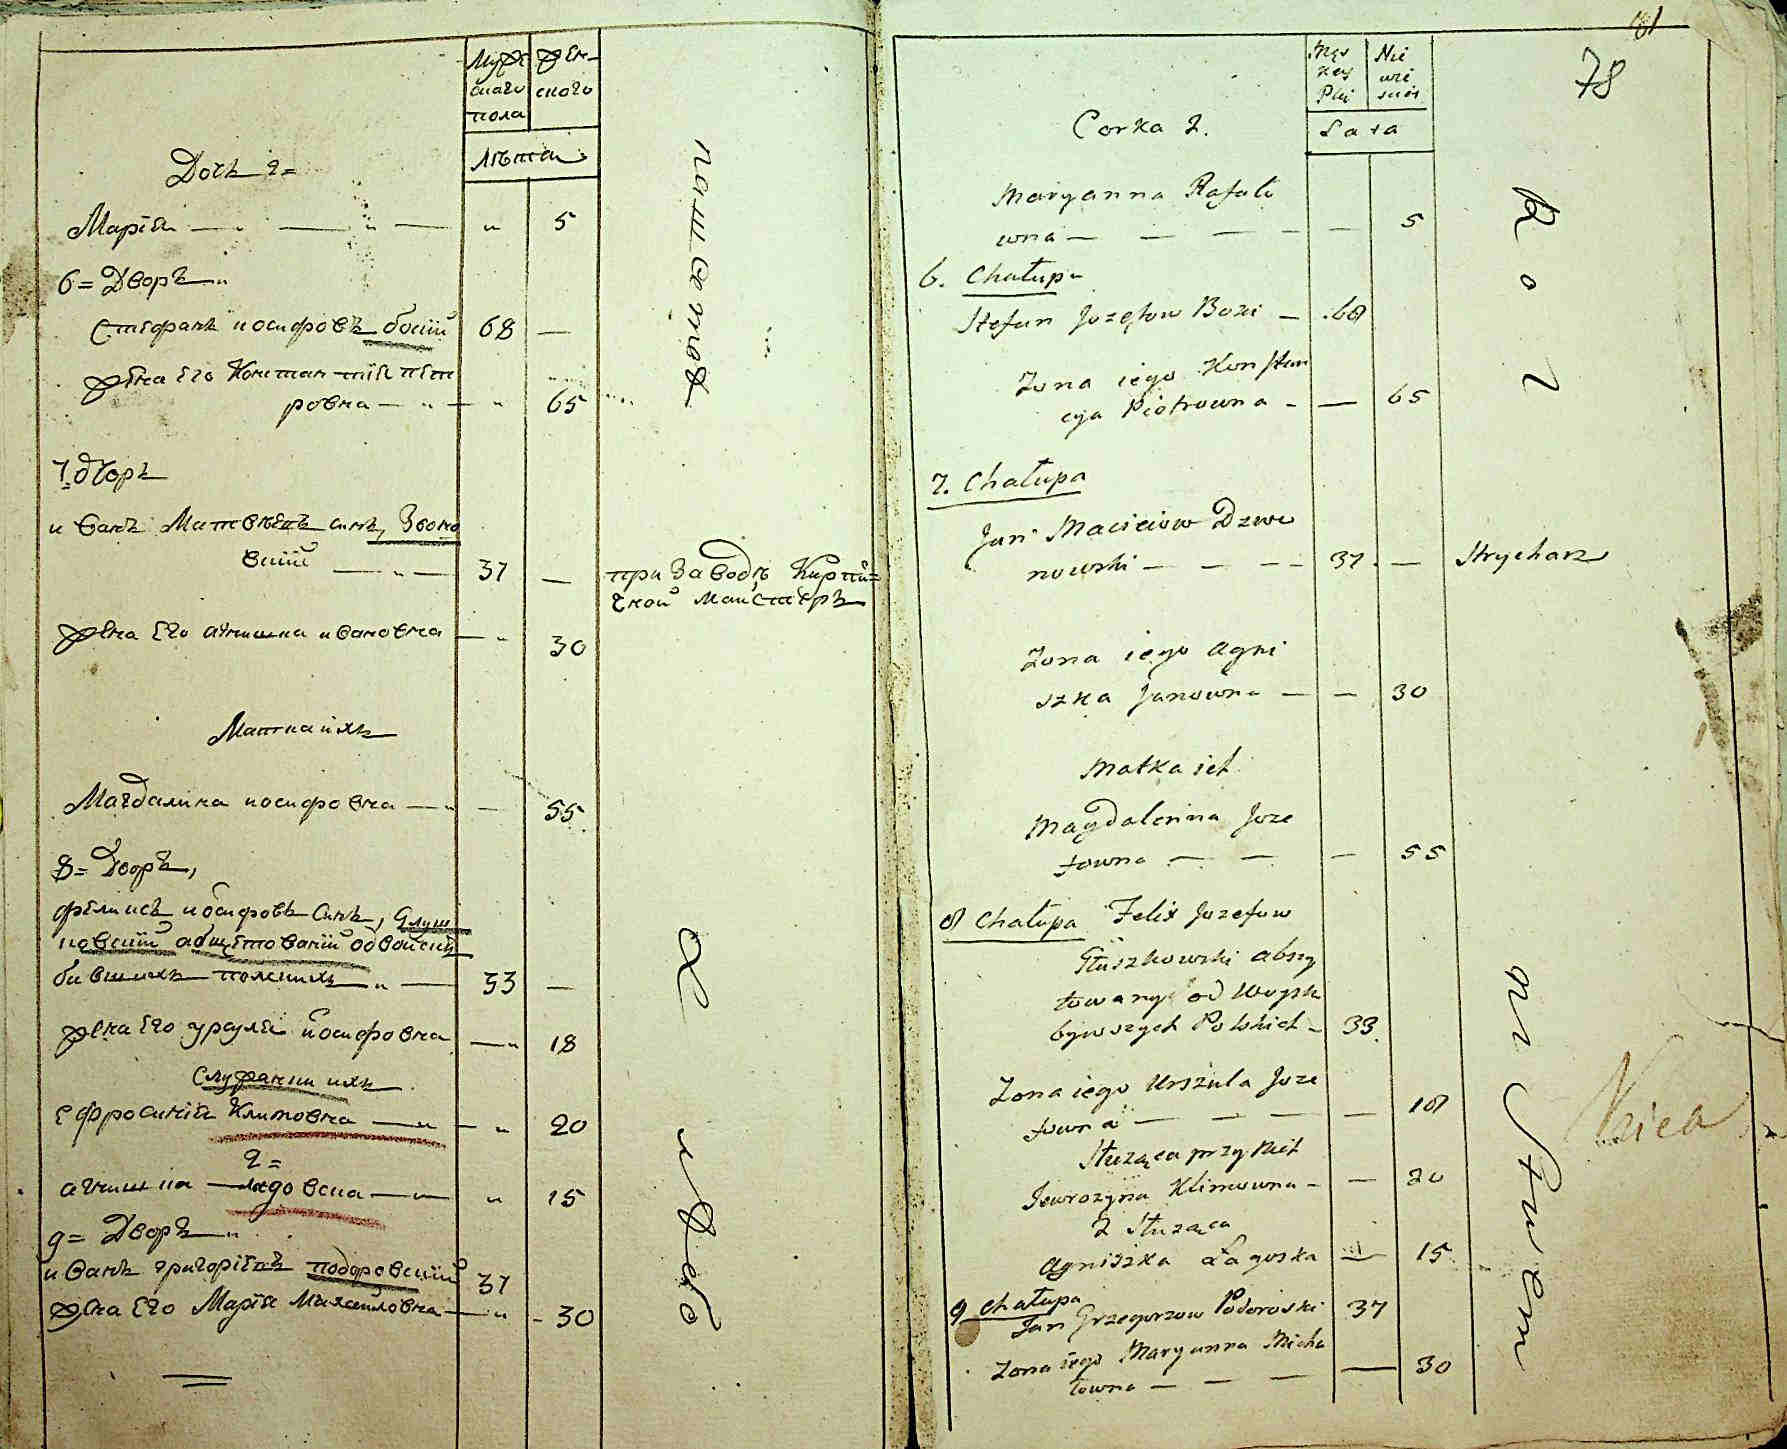 Мужскаго пола
женскаго
Лѣта
Дочь 2=
Марiя — „ — „ — „ 5
6= Дворъ „
Стефанъ иосифовъ боцiй 68 —
жена Его Констанцiя пет
ровна — „ — „ 65
7= дворъ
иванъ Матвѣевъ сынъ, Звонo
вскiй — „ — 37 —
при Заводѣ Кирпи=
чной Маистеръ
жена Его агнишка ивановна — „ 30
Матка ихъ
Магдалина иосифовна — „ — 55
8= Дворъ,
феликсъ иосифовъ Сынъ,
бывшихъ полскихъ „ — 33 —
жена Его урсуля иосифовна — „ 18
Служанки ихъ
Ефросинiя Климовна — „ — „ 20
2=
агнишка — „ 15
9= Дворъ „
иванъ григорiевъ подоровскiй 37
жена Его Марiя Михайловна — „ - 30
пашетъ
хлѣб
81
78
Męs
kiej
Płci
Nie
wie
sciey
Lata
Corka 2.
Maryanna Rafało
wna — — — — — 5
6. Chałupa
Stefan Jozefow Bozi — 68
Zona iego Konstan
cya Piotrowna - — 65
7. Chałupa
Jan Macieiow Dzwo
nowski — — — - 37. — Strycharz
Zona iego Agni
szka Janowna — — 30
Matka ich
Magdalenna Joze
fowna — — — 55
8 Chałupa Felix Jozefow
Głuszkowski abszy
towany od Woysk
bywszych Polskich - 33.
Zona iego Urszula Joze
fowna — — — — 18
Służąca przy nich
Jewrozyna Klimowna - — 20
2 Służąca
Agniszka — 15
9 Chałupa
Jan Grzegorzow Podoroski 37
Zona iego Maryanna Micha
łowna — — — — 30
Rol